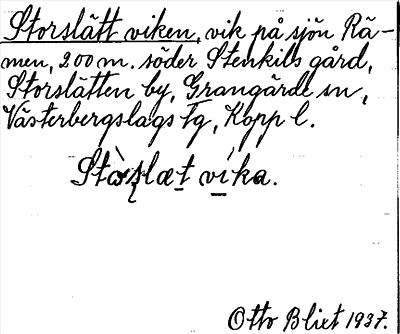 Storslätt viken, vik på sjön Rä-
men, 200 m. söder Stenkils gård,
Storslätten by, Grangärde sn,
Västerbergslags Tg, Kopp l.
Stòrslæt víka.
Otto Blixt 1937.